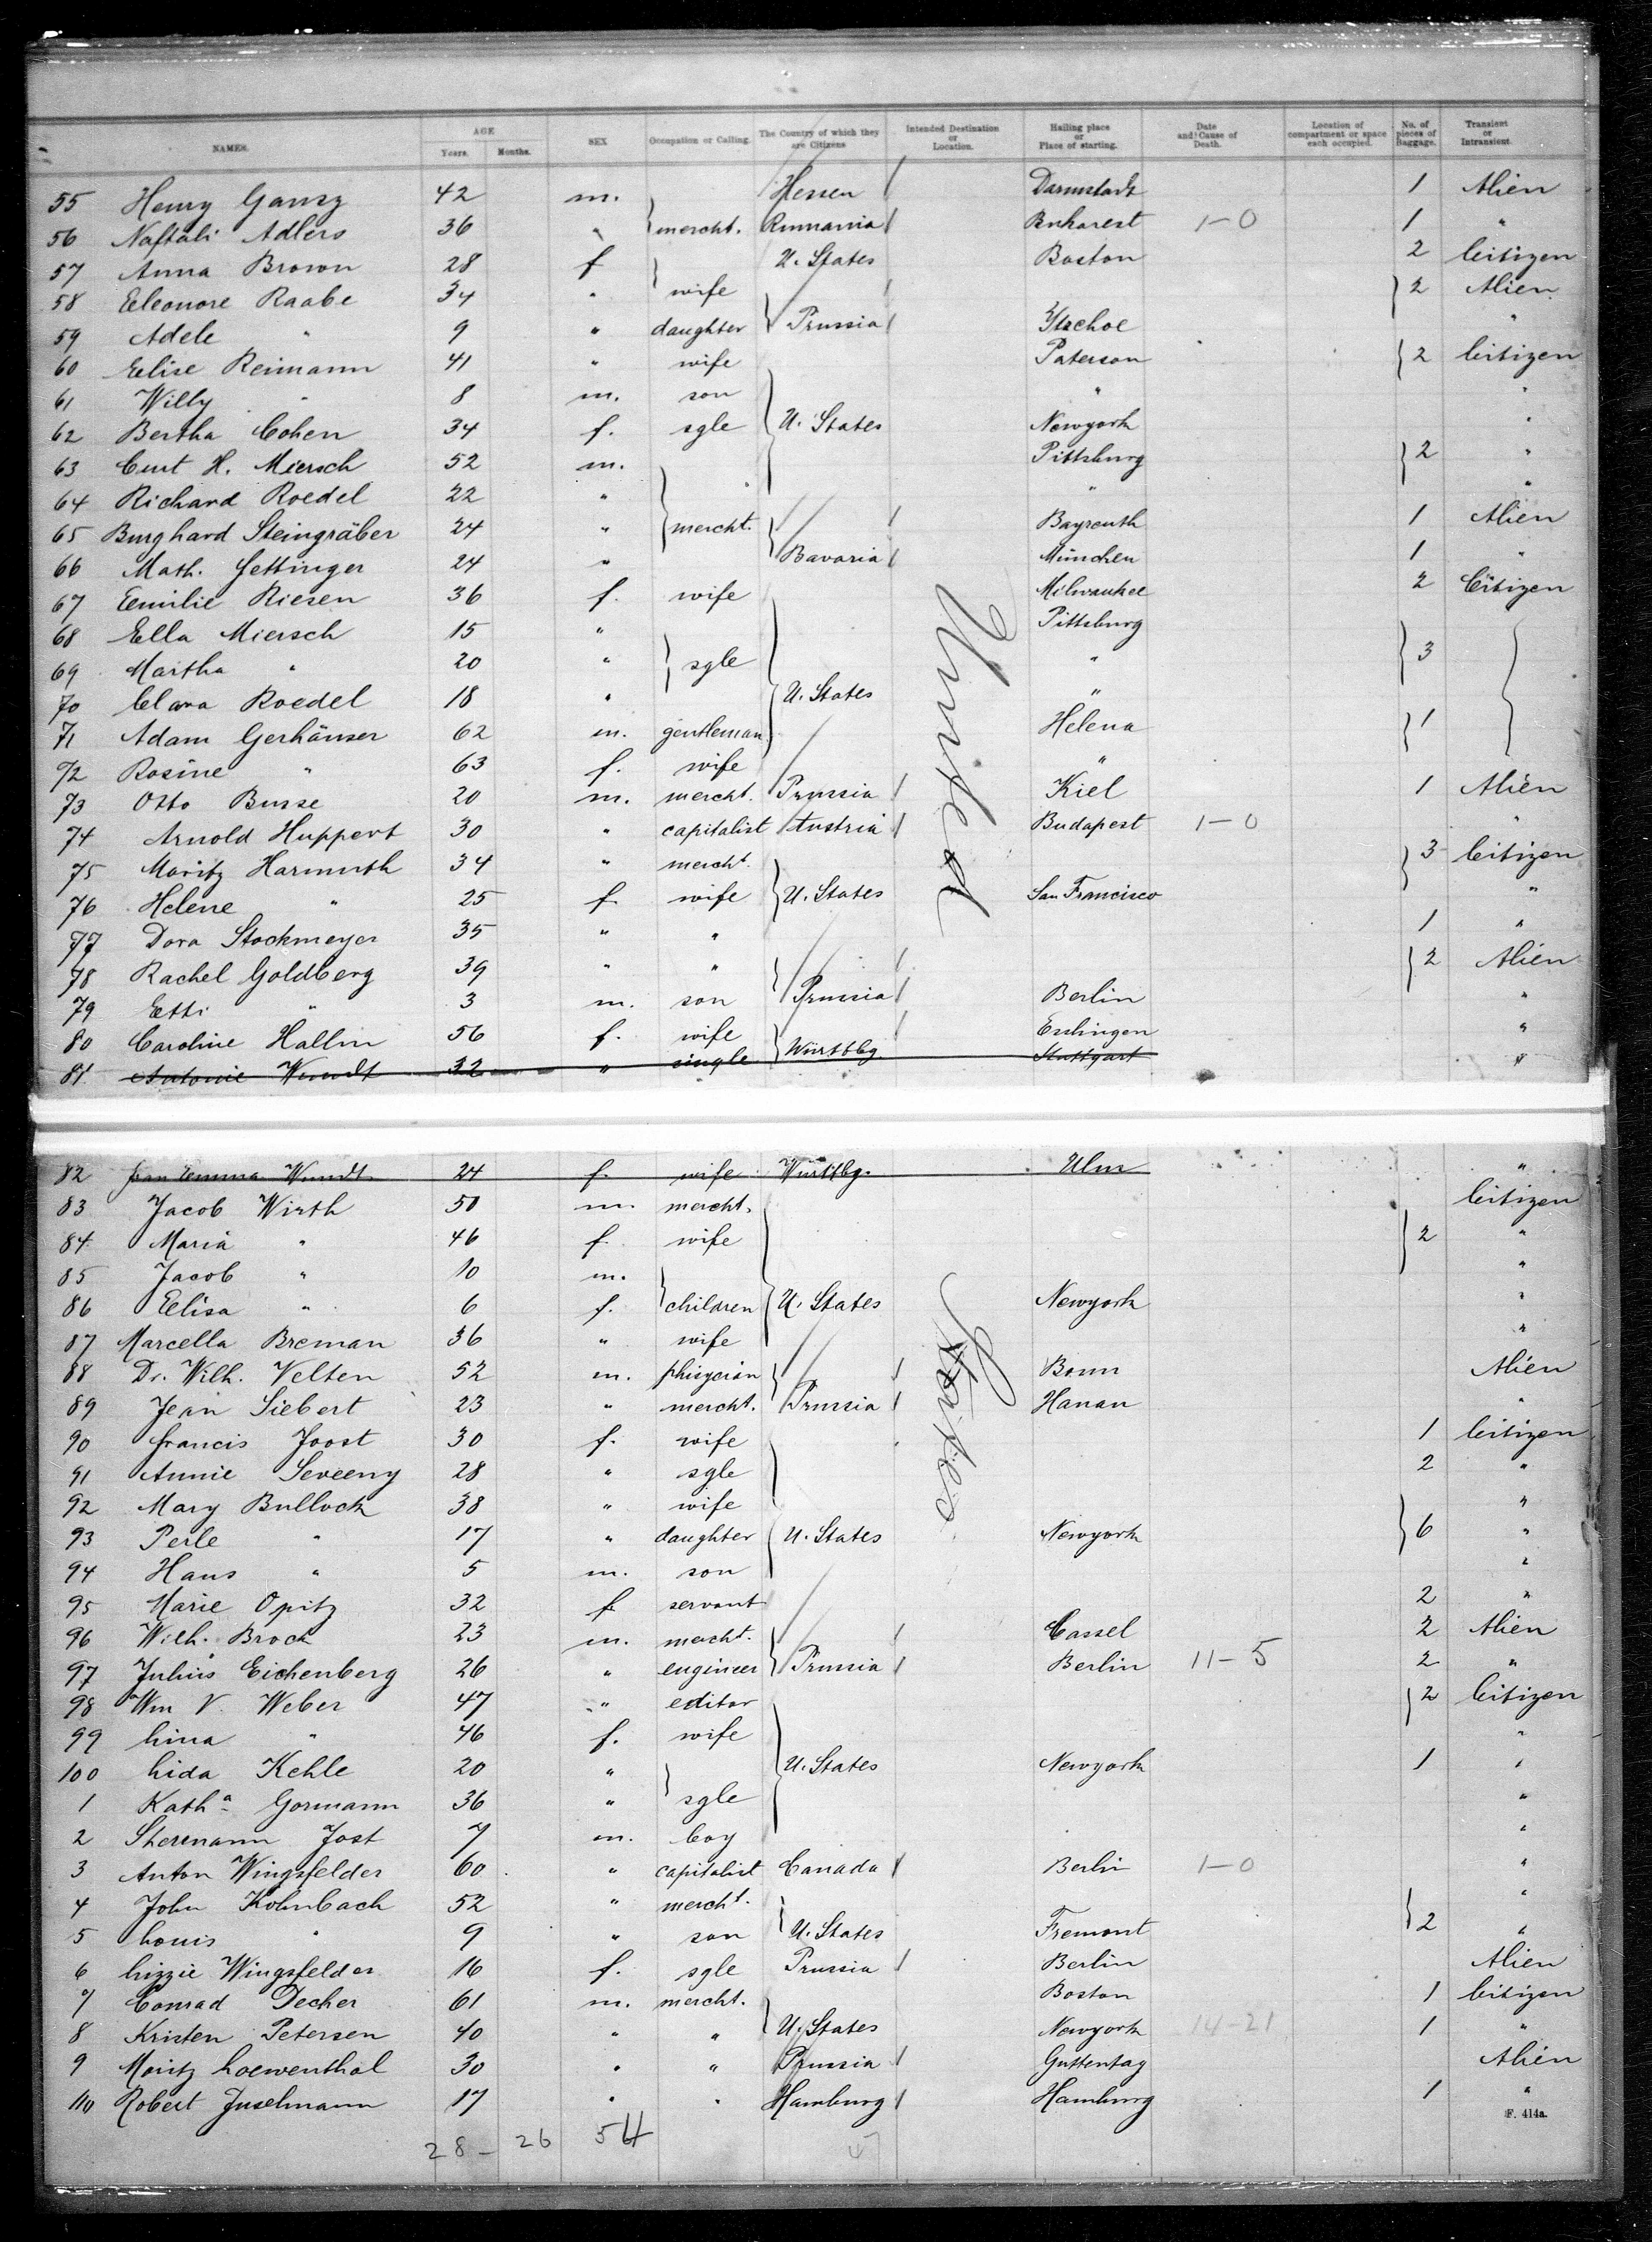 NAMES. AGE Years. Months. SEX Occupation or Calling. The Country of which they are Citizens Intended Destination or Location. Hailing place or Place of starting. Date and Cause of Death. Location of compartment or space each occupied. No. of pieces of Baggage. Transient or Intransient.
55 Henry Gansz 42 m. Hessen Darmstadt 1 Alien
56 Naftali Adlers 36 " mercht. Rumania Bukarest 1-0 1 "
57 Anna Brown 28 f U. States Boston 2 Citizen
58 Eleonore Raabe 34 " wife 2 Alien
59 Adele " 9 " daughter Prussia Itzehoe "
60 Elise Reimann 41 " wife Paterson 2 Citizen
61 Willy " 8 m. son " "
62 Bertha Cohen 34 f. sgle U. States Newyork "
63 Curt H. Miersch 52 m. Pittsburg 2 "
64 Richard Roedel 22 " " "
65 Burghard Steingräber 24 " mercht. Bayreuth 1 Alien
66 Math. Fettinger 24 " Bavaria München 1 "
67 Emilie Riesen 36 f. wife Milwaukee 2 Citizen
68 Ella Miersch 15 " Pittsburg
69 Martha " 20 " sgle " 3
70 Clara Roedel 18 " U. States "
71 Adam Gerhäuser 62 m. gentleman Helena 1
72 Rosine " 63 f. wife "
73 Otto Busse 20 m. mercht. Prussia Kiel 1 Alien
74 Arnold Huppert 30 " capitalist Austria Budapest 1-0 "
75 Moritz Harmuth 34 " mercht. 3 Citizen
76 Helene " 25 f. wife U. States San Francisco "
77 Dora Stockmeyer 35 " " 1 "
78 Rachel Goldberg 39 " " 2 Alien
79 Etti " 3 m. son Prussia Berlin "
80 Caroline Hallin 56 f. wife Esslingen "
81 Antonie Wundt 32 " single Württbg. Stuttgart "
United
82 Frau Emma Wundt 24 f. wife Württbg. Ulm "
83 Jacob Wirth 50 m. mercht. Citizen
84 Maria " 46 f. wife 2 "
85 Jacob " 10 m. "
86 Elisa " 6 f. children U. States Newyork "
87 Marcella Breman 36 " wife "
88 Dr. Wilh. Velten 52 m. phisycian Bonn Alien
89 Jean Siebert 23 " mercht. Prussia Hanau "
90 Francis Joost 30 f. wife 1 Citizen
91 Annie Seveeny 28 " sgle 2 "
92 Mary Bullock 38 " wife "
93 Perle " 17 " daughter U. States Newyork 6 "
94 Hans " 5 m. son "
95 Marie Opitz 32 f servant 2 "
96 Wilh. Brock 23 m. mercht. Cassel 2 Alien
97 Julius Eichenberg 26 " engineer Prussia Berlin 11-5 2 "
98 Wm V. Weber 47 " editor 2 Citizen
99 Lina " 46 f. wife "
100 Lida Kehle 20 " U. States Newyork 1 "
1 Katha Gormann 36 " sgle "
2 Shermann Jost 7 m. boy "
3 Anton Wingsfelder 60 " capitalist Canada Berlin 1-0 "
4 John Kohnbach 52 " mercht. "
5 Louis " 9 " son U. States Fremont 2 "
6 Lizzie Wingsfelder 16 f. sgle Prussia Berlin Alien
7 Conrad Decher 61 m. mercht. Boston 1 Citizen
8 Kristen Petersen 40 " " U. States Newyork 14-21 1 "
9 Moritz Loewenthal 30 " " Prussia Guttentag Alien
110 Robert Juselmann 17 " " Hamburg Hamburg 1 "
States
F. 414a.
28 - 26 54